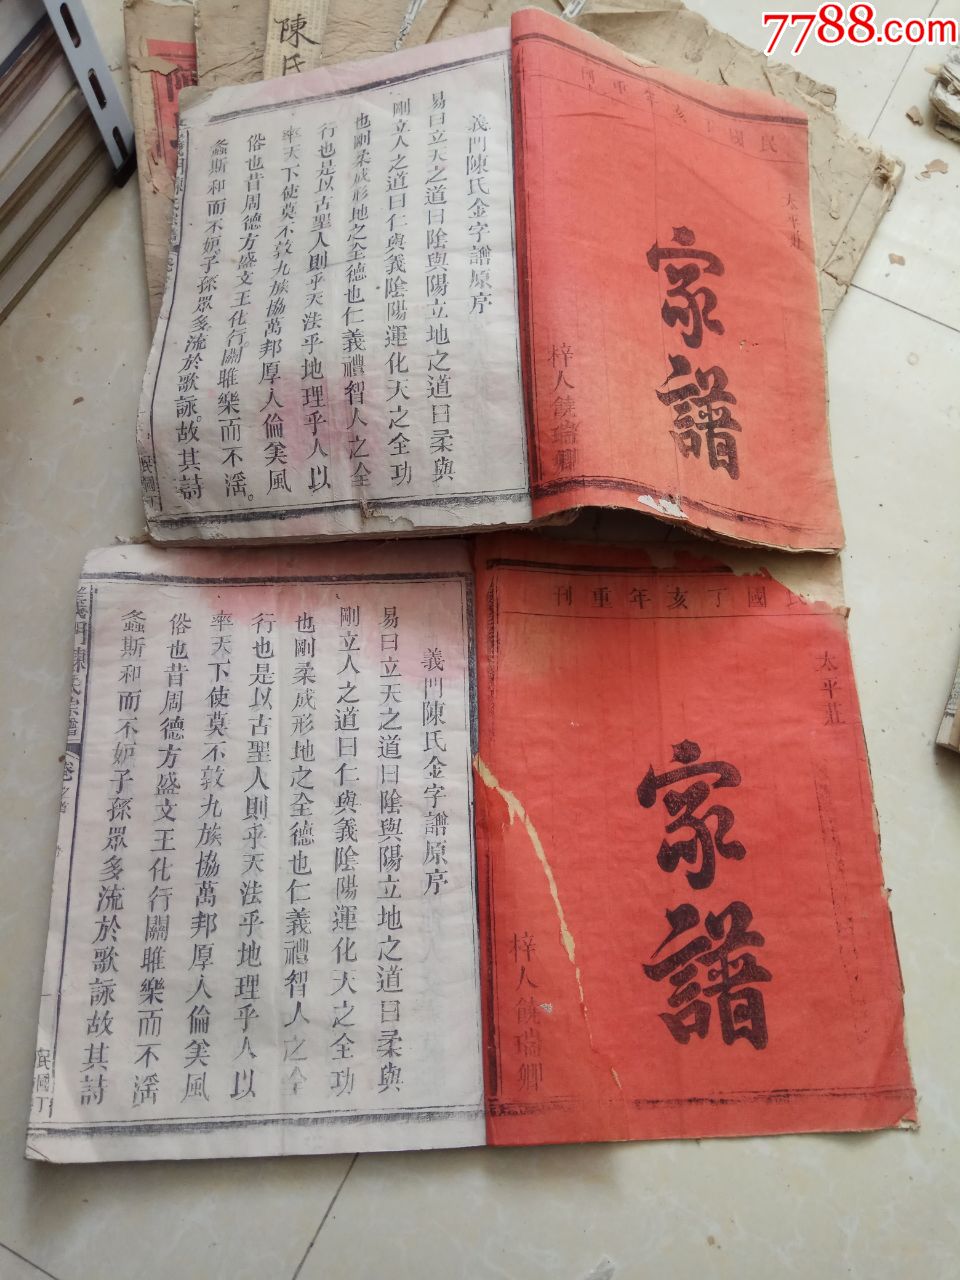 7788.com
陳氏
民國丁亥年重刊
太平莊
家譜
梓人饒瑞卿
義門陳氏金字譜原序
易曰立天之道曰陰與陽立地之道曰柔與
剛立人之道曰仁與義陰陽運化天之全功
也剛柔成形地之全德也仁義禮智人之全
行也是以古聖人則乎天法乎地理乎人以
率天下使莫不敦九族協萬邦厚人倫美風
俗也昔周德方盛文王化行。關雎樂而不淫。
螽斯和而不妒子孫眾多流於歌詠。故其詩
義門陳氏宗譜
民國丁
民國丁亥年重刊
太平莊
家譜
梓人饒瑞卿
義門陳氏金字譜原序
易曰立天之道曰陰與陽立地之道曰柔與
剛立人之道曰仁與義陰陽運化天之全功
也剛柔成形地之全德也仁義禮智人之全
行也是以古聖人則乎天法乎地理乎人以
率天下使莫不敦九族協萬邦厚人倫美風
俗也昔周德方盛文王化行關雎樂而不淫
螽斯和而不妒子孫眾多流於歌詠故其詩
義門陳氏宗譜 卷之首
民國丁